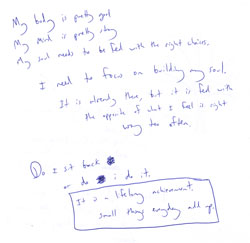 My body is pretty good
My mind is pretty strong
My soul needs to be fed with the right choices.
I need to focus on building my soul.
It is already there, but it is fed with
the opposite of what I feel is right
way too often.
Do I sit back
or do i do it.
It is a lifelong achievement
small things everyday add up.